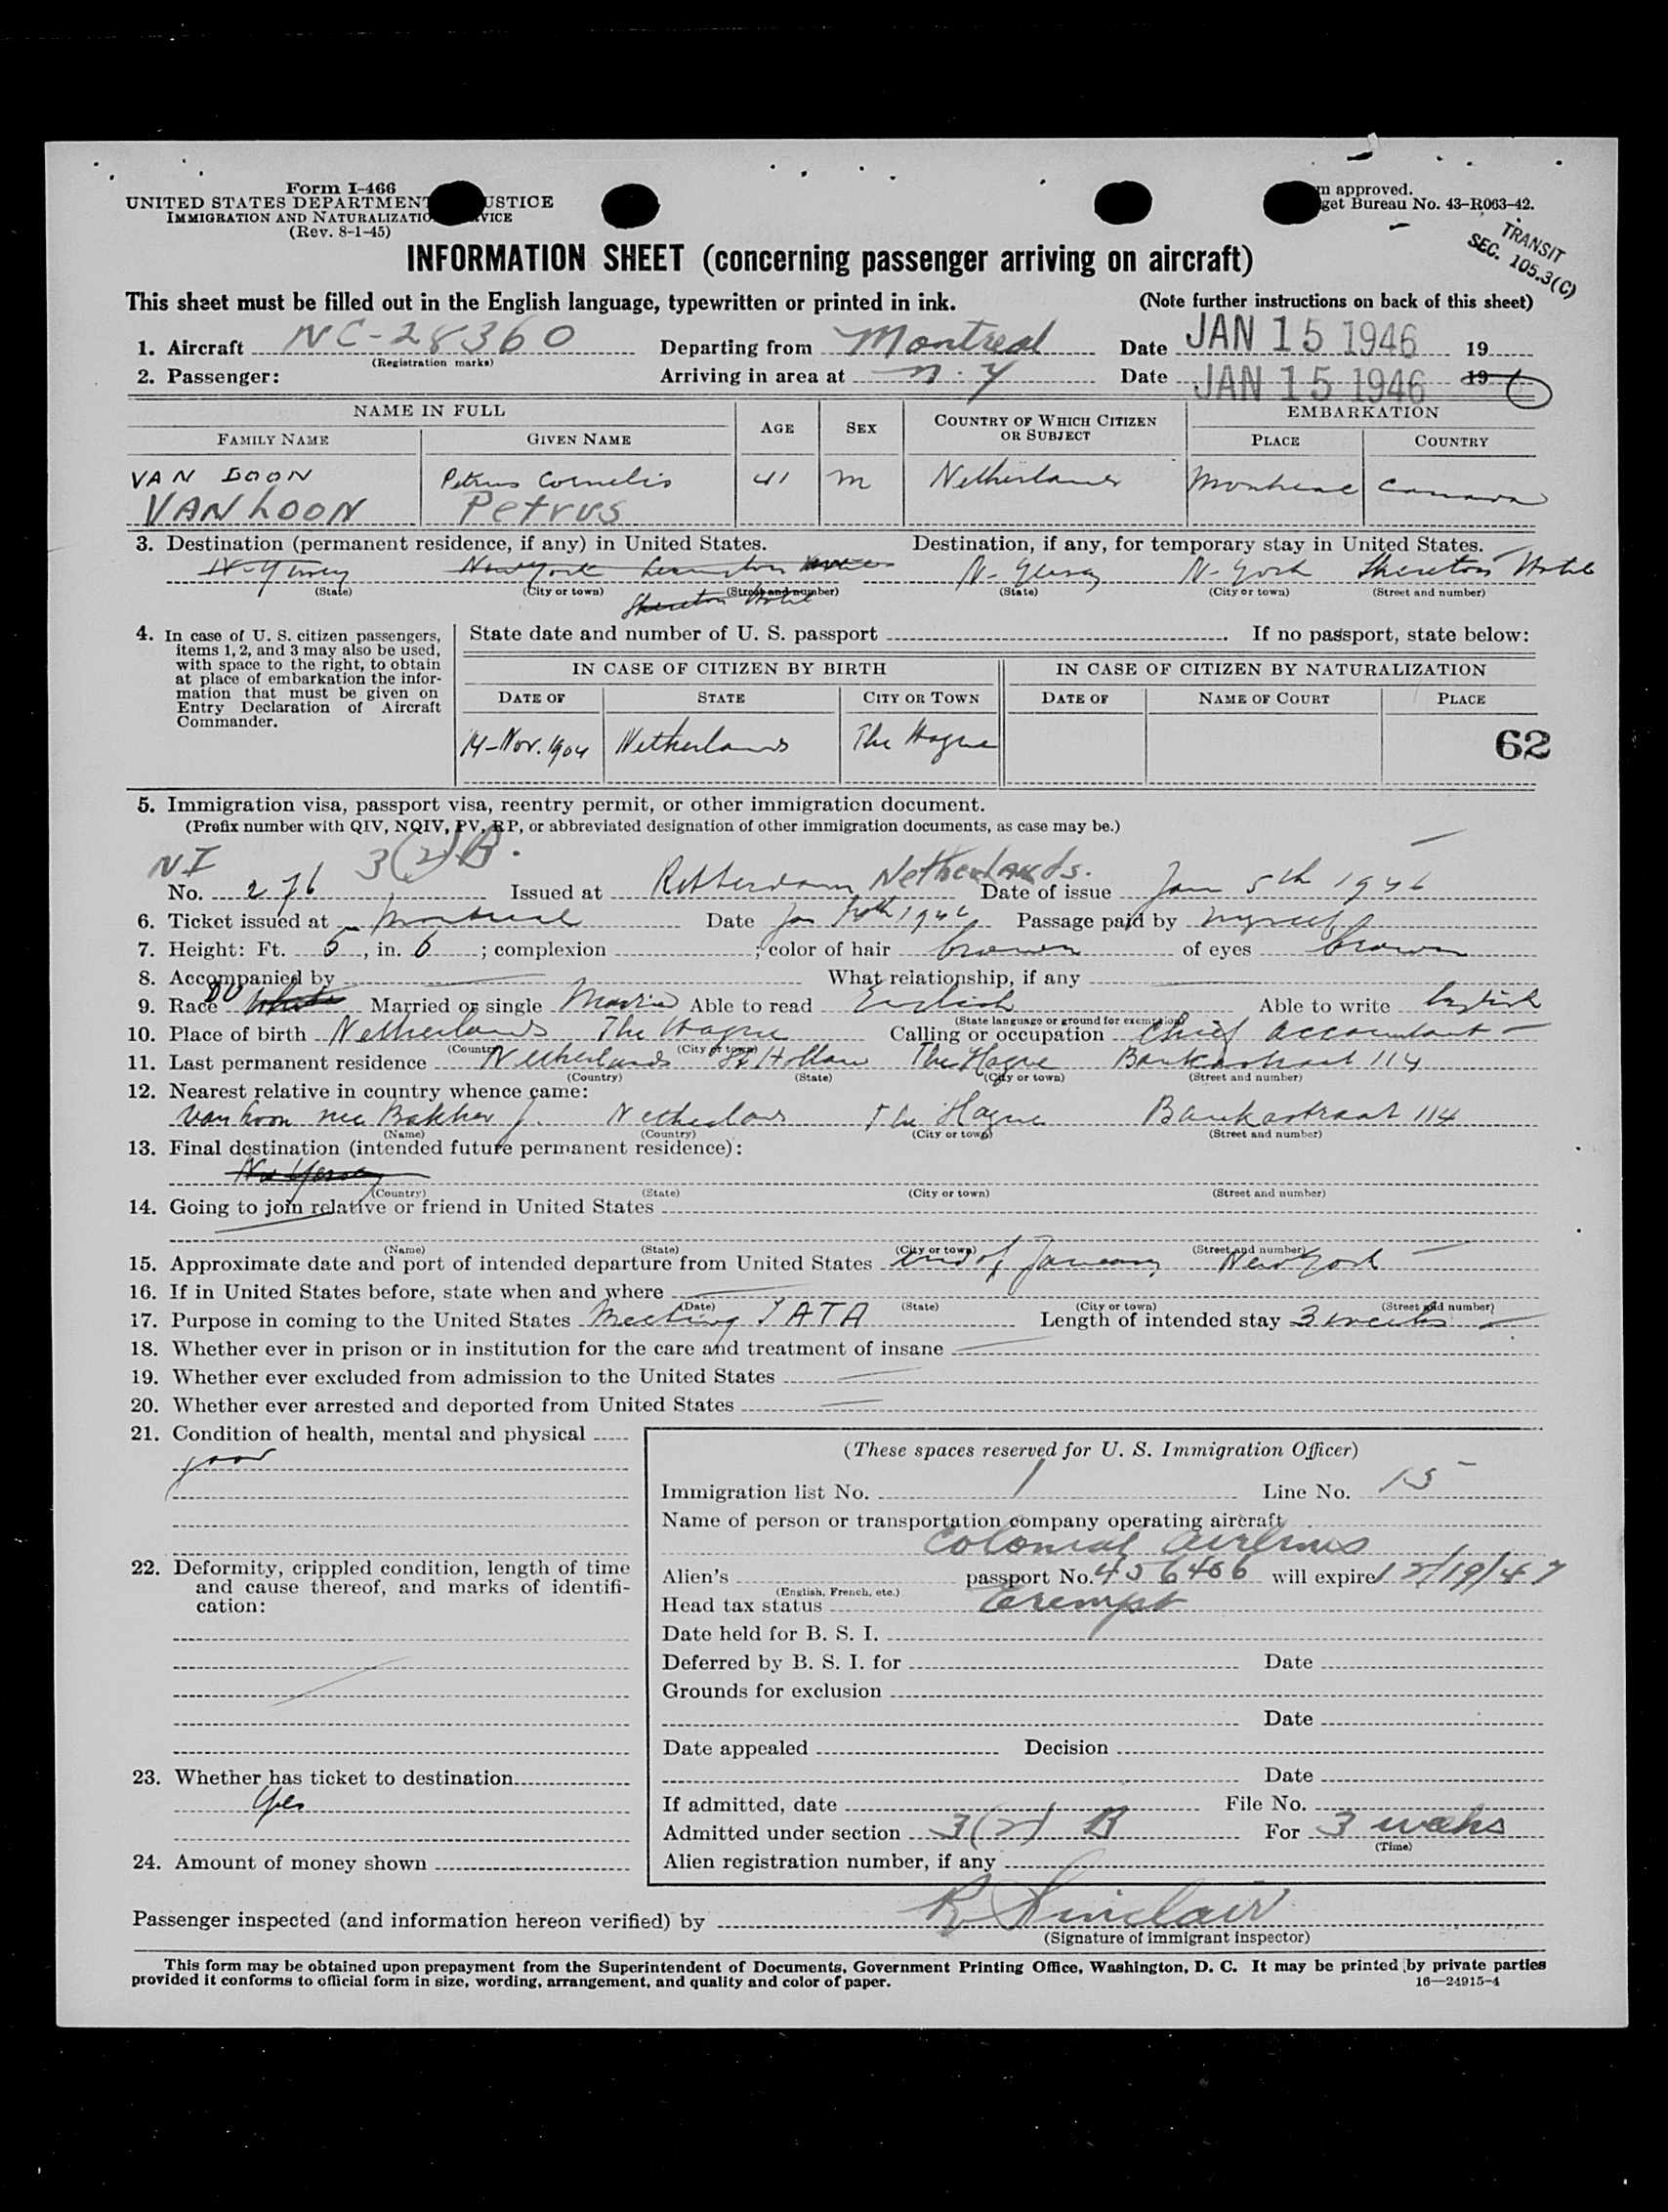 Form I-466
UNITED STATES DEPARTMENT USTICE
IMMIGRATION AND NATURALIZATIO VICE
(Rev. 8-1-45)
m approved.
get Bureau No. 43-R063-42.
TRANSIT
SEC. 105.3(C)
INFORMATION SHEET (concerning passenger arriving on aircraft)
This sheet must be filled out in the English language, typewritten or printed in ink. (Note further instructions on back of this sheet)
1. Aircraft NC-28360 Departing from Montreal Date JAN 15 1946 19
(Registration marks)
2. Passenger: Arriving in area at N.Y Date JAN 15 1946 19
NAME IN FULL AGE SEX COUNTRY OF WHICH CITIZEN OR SUBJECT EMBARKATION
FAMILY NAME GIVEN NAME PLACE COUNTRY
VAN LOON Petrus Cornelis 41 M Netherlands Montreal Canada
VAN LOON Petrus
3. Destination (permanent residence, if any) in United States. Destination, if any, for temporary stay in United States.
New York N- York Shereton Hotel
(State) (City or town) (Street and number) (State) (City or town) (Street and number)
Shereton Hotel
4. In case of U. S. citizen passengers, items 1, 2, and 3 may also be used, with space to the right, to obtain at place of embarkation the information that must be given on Entry Declaration of Aircraft Commander.
State date and number of U. S. passport . If no passport, state below:
IN CASE OF CITIZEN BY BIRTH IN CASE OF CITIZEN BY NATURALIZATION
DATE OF STATE CITY OR TOWN DATE OF NAME OF COURT PLACE
14-Nov. 1904 Netherlands The Hague 62
5. Immigration visa, passport visa, reentry permit, or other immigration document.
(Prefix number with QIV, NQIV, PV, RP, or abbreviated designation of other immigration documents, as case may be.)
NI 3(2)B.
No. 276 Issued at Rotterdam Netherlands. Date of issue Jan 5th 1946
6. Ticket issued at Montreal Date Jan 1946 Passage paid by myself
7. Height: Ft. 5, in. 6; complexion ; color of hair brown of eyes brown
8. Accompanied by What relationship, if any
9. Race DU White Married or single Married Able to read English Able to write English
(State language or ground for exemption)
10. Place of birth Netherlands The Hague Calling or occupation Chief accountant
(Country) (City or town)
11. Last permanent residence Netherlands Holland The Hague Bankastraat 114
(Country) (State) (City or town) (Street and number)
12. Nearest relative in country whence came:
van Loon nee Bakker J. Netherlands The Hague Bankastraat 114
(Name) (Country) (City or town) (Street and number)
13. Final destination (intended future permanent residence):
(Country) (State) (City or town) (Street and number)
14. Going to join relative or friend in United States
(Name) (State) (City or town) (Street and number)
15. Approximate date and port of intended departure from United States end of January New York
16. If in United States before, state when and where
(Date) (State) (City or town) (Street and number)
17. Purpose in coming to the United States Meeting IATA Length of intended stay 3 weeks
18. Whether ever in prison or in institution for the care and treatment of insane
19. Whether ever excluded from admission to the United States
20. Whether ever arrested and deported from United States
21. Condition of health, mental and physical
good
22. Deformity, crippled condition, length of time and cause thereof, and marks of identification:
23. Whether has ticket to destination
Yes
24. Amount of money shown
(These spaces reserved for U. S. Immigration Officer)
Immigration list No. 1 Line No. 15
Name of person or transportation company operating aircraft
Colonial Airlines
Alien's passport No. 456486 will expire 12/19/47
(English, French, etc.)
Head tax status Exempt
Date held for B. S. I.
Deferred by B. S. I. for Date
Grounds for exclusion
Date
Date appealed Decision
Date
If admitted, date File No.
Admitted under section 3(2) B For 3 weeks
(Time)
Alien registration number, if any
Passenger inspected (and information hereon verified) by R Sinclair
(Signature of immigrant inspector)
This form may be obtained upon prepayment from the Superintendent of Documents, Government Printing Office, Washington, D. C. It may be printed by private parties
provided it conforms to official form in size, wording, arrangement, and quality and color of paper. 16—24915-4